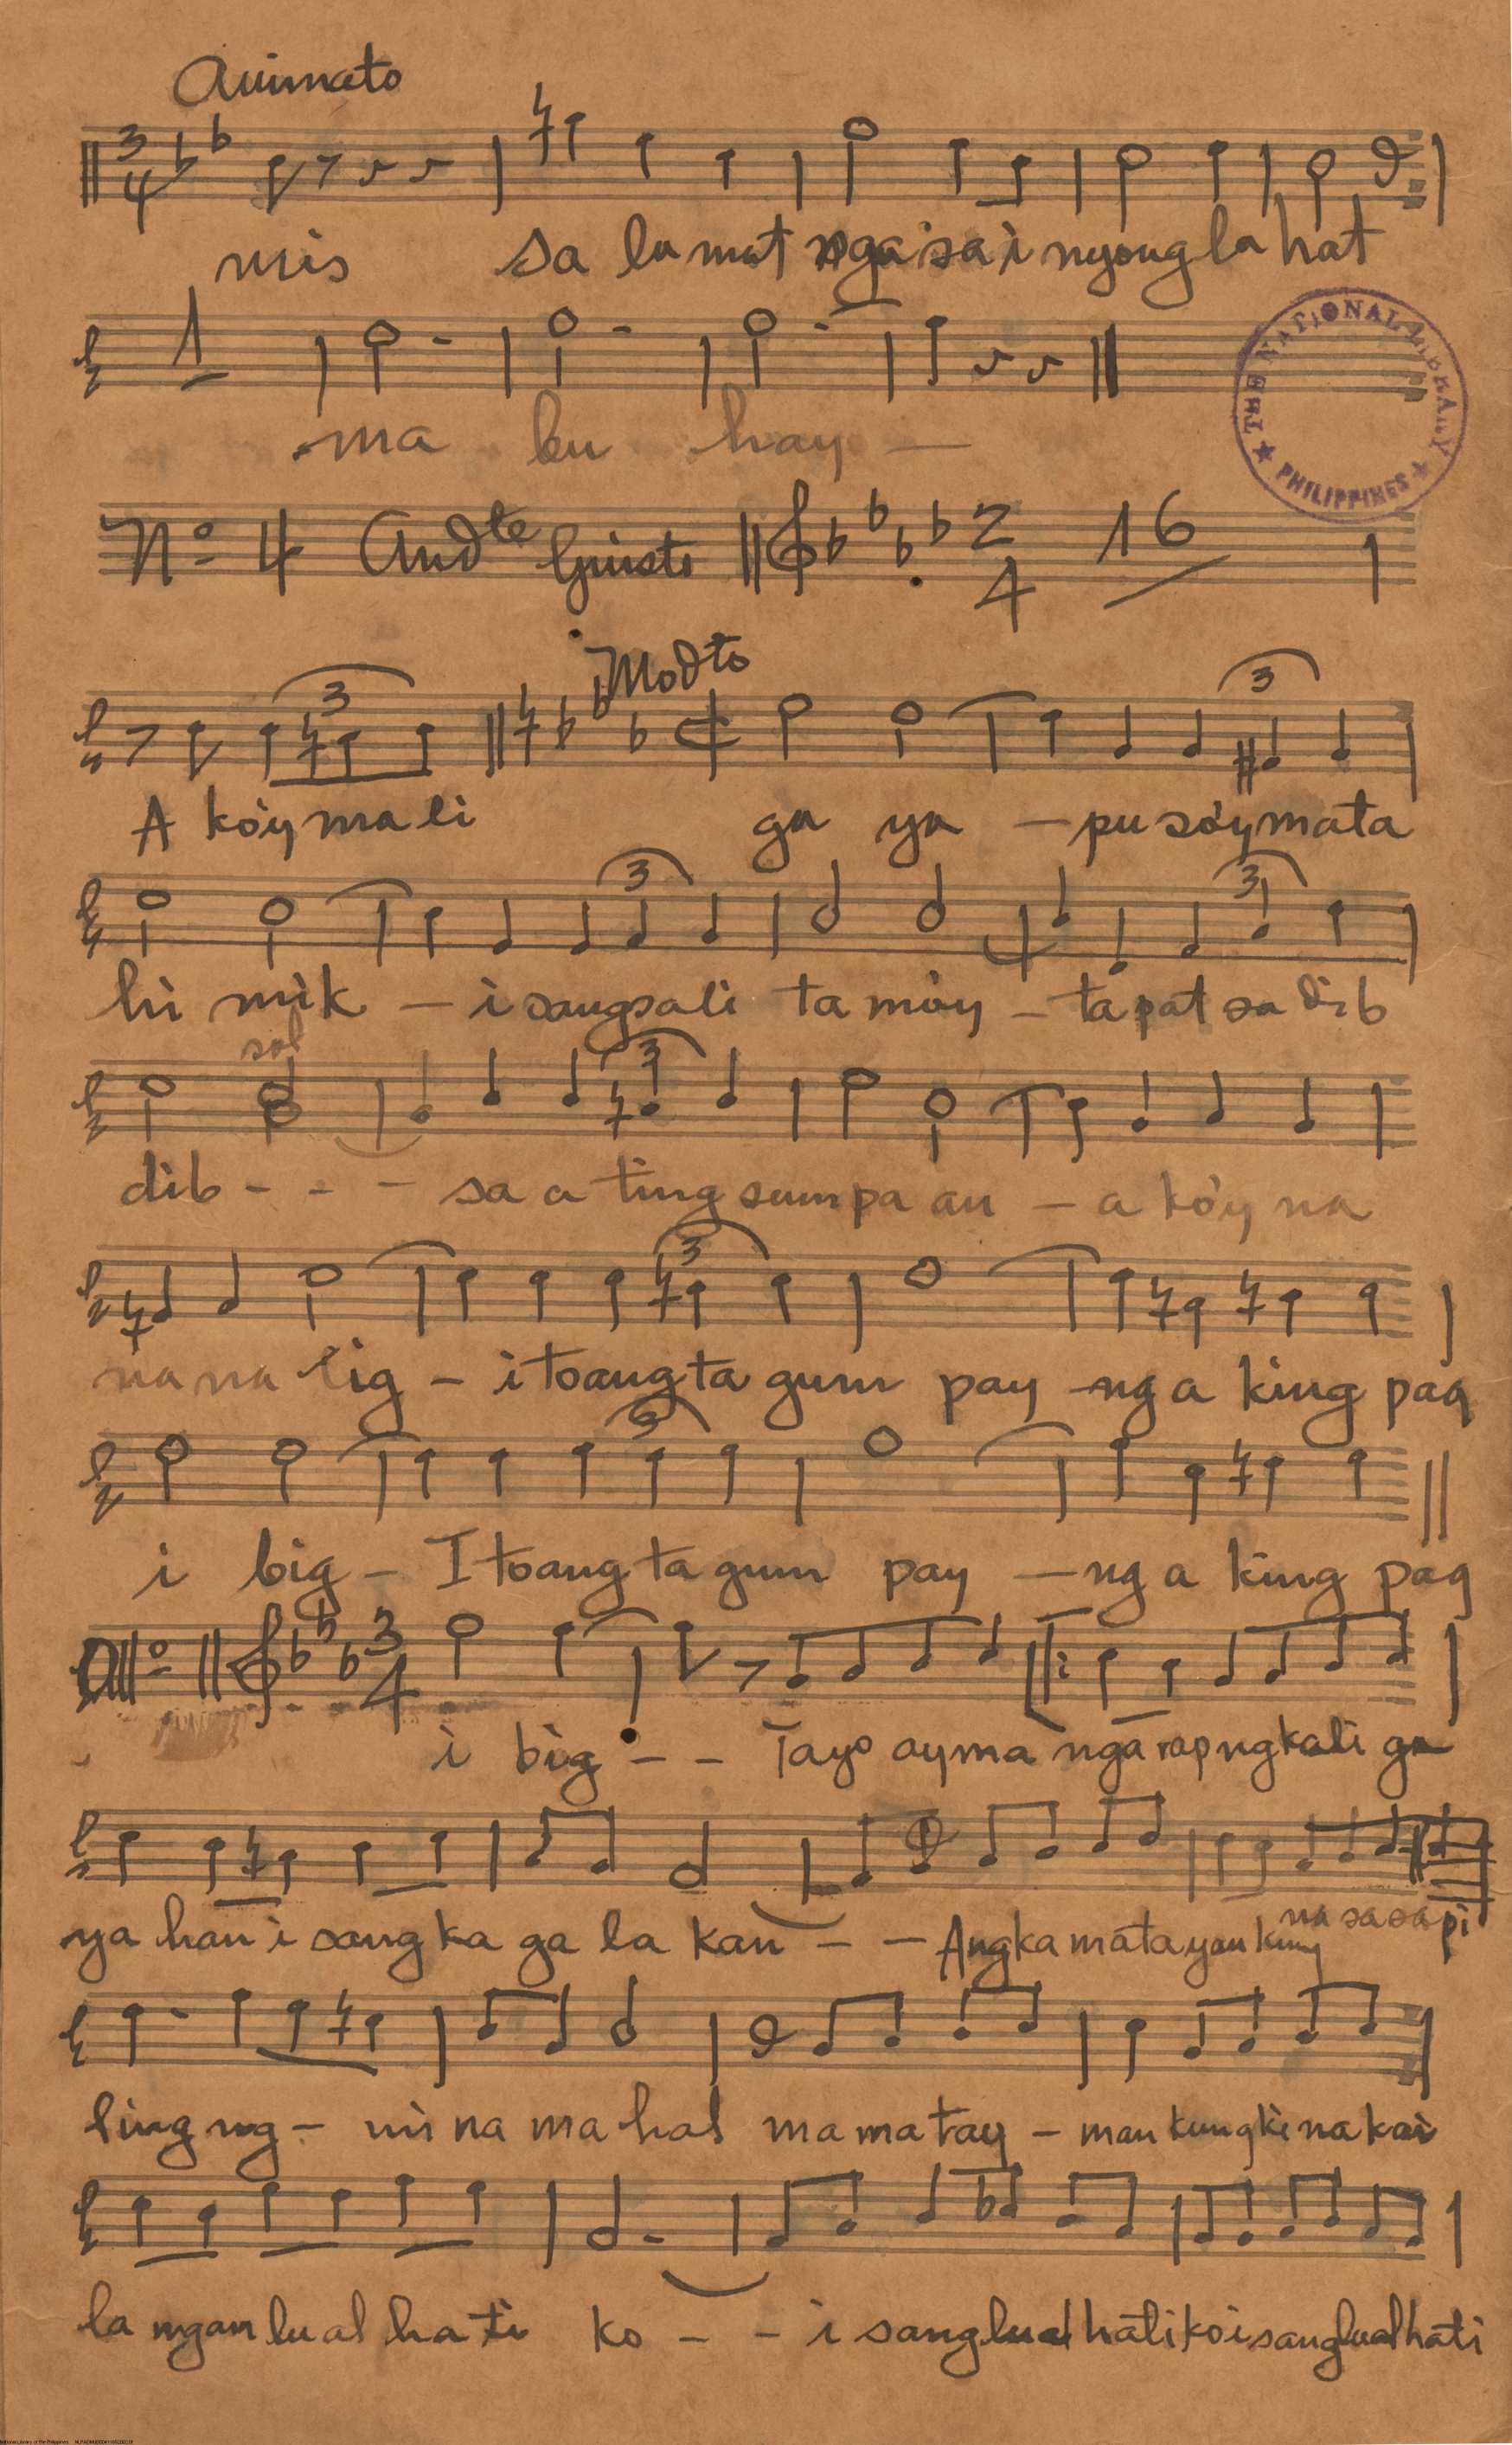 Animato
3 4
mis sa la mat nga sa i nyong la hat
1
THE NATIONAL LIBRARY
PHILIPPINES
ma bu hay —
Nº 4 Andte Giusto 2 4 16
Modto
3 3
A ko'y ma li ga ya — pu so'y mata
3 3
hi mik — i sang sa li ta mo'y — ta pat sa dib
sol
3
dib - - - sa a ting sum pa an — a ko'y na
3
na na lig — i to ang ta gum pay — ng a king pag
3
i big — I to ang ta gum pay — ng a king pag
3 4
i big - - Tayo ay ma nga rap ng kali ga
ya han i sang ka ga la kan - - Ang ka matayan kung na sa sa pi
ling ng — mi na ma hal ma ma tay — man kung ki na kai
la ngan lu al ha ti ko - - i sang lual hati ko i sang lual hati